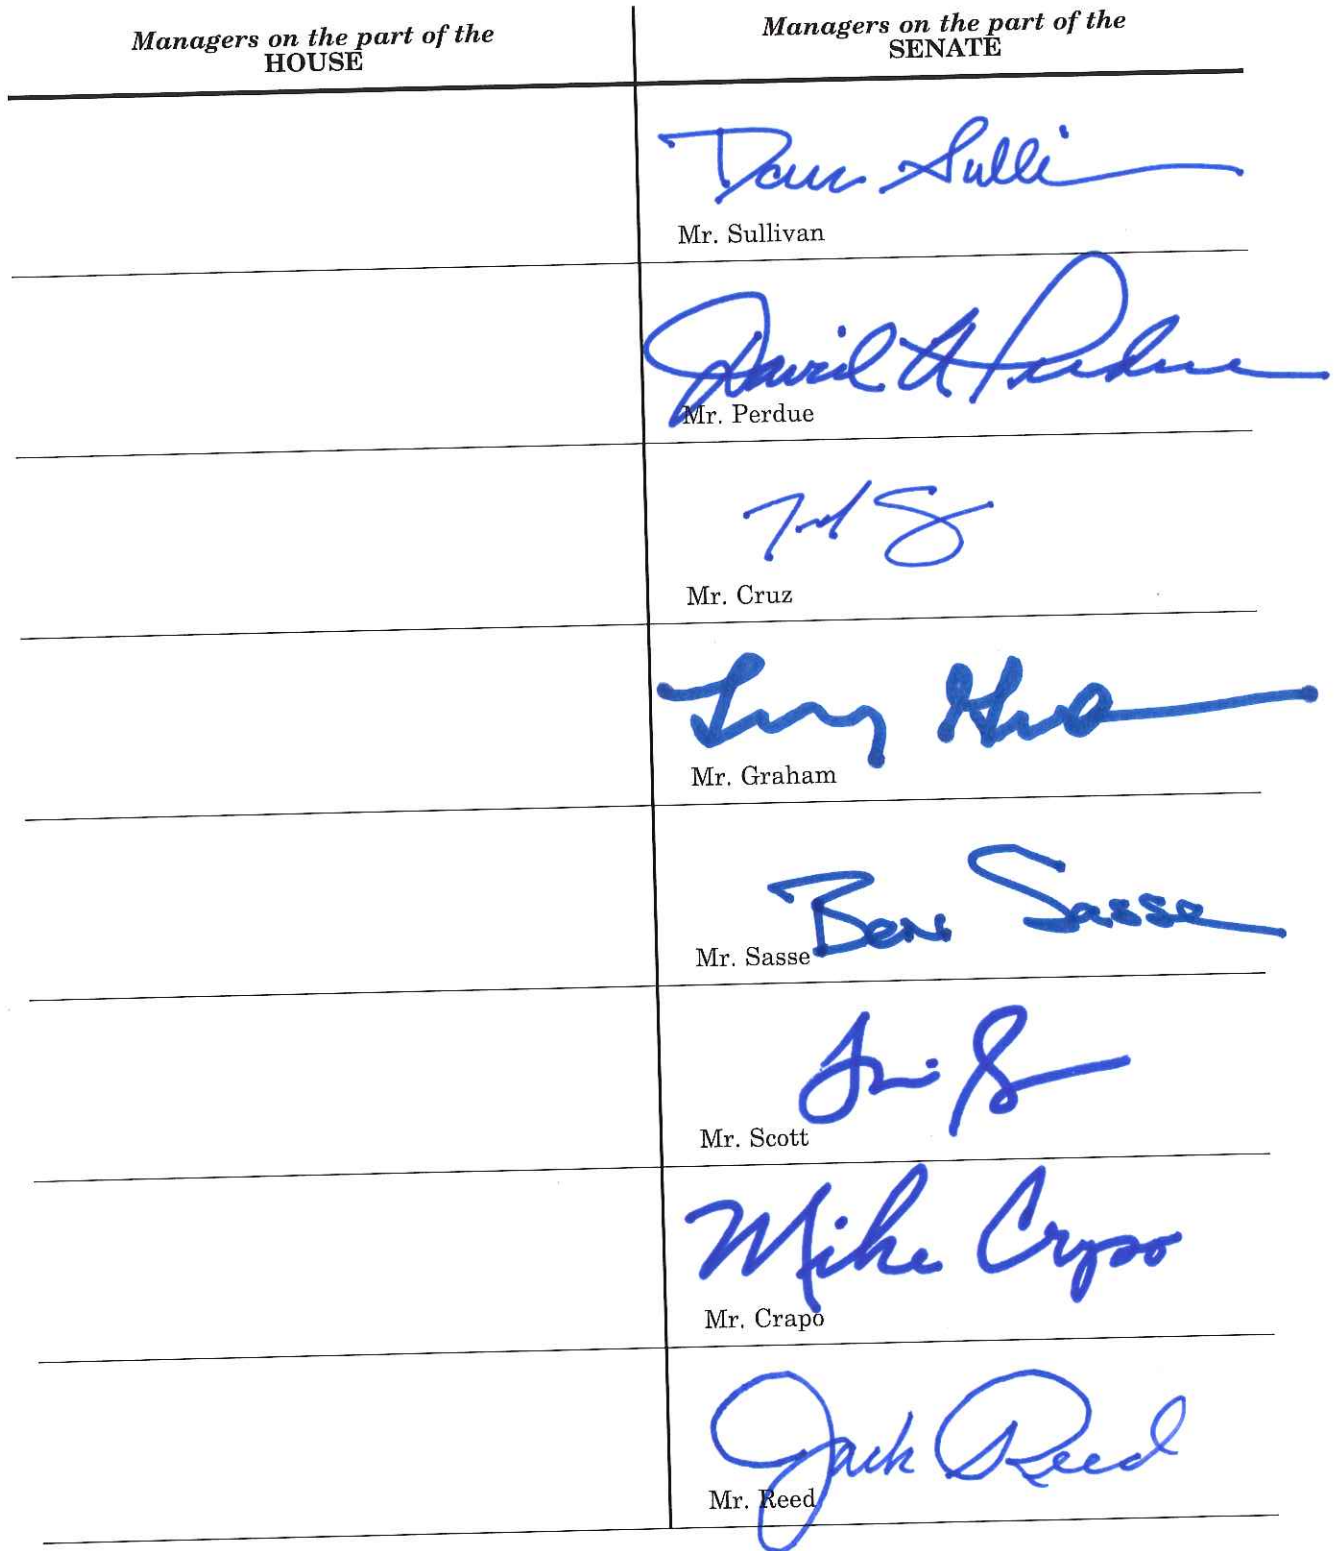 Managers on the part of the
HOUSE
Managers on the part of the
SENATE
Dan Sulli
Mr. Sullivan
David A Perdue
Mr. Perdue
Ted
Mr. Cruz
Mr. Graham
Ben Sasse
Mr. Sasse
Tim
Mr. Scott
Mike Crapo
Mr. Crapo
Jack Reed
Mr. Reed